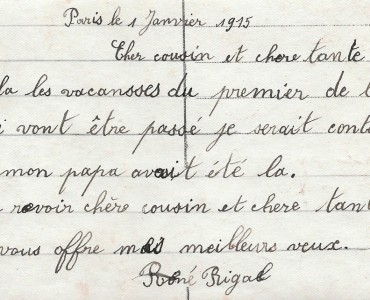 Paris le 1 Janvier 1915
Cher cousin et chere tante
la les vacansses du premier de l
i vont être passé je serait cont
mon papa avait été la.
revoir chère cousin et chere tant
vous offre mes meilleurs veux.
René Rigal